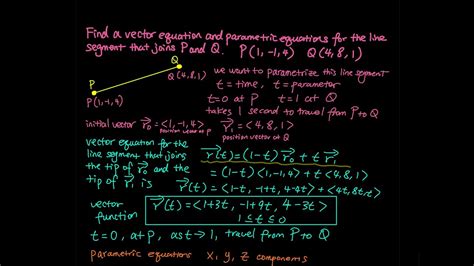 Find a vector equation and parametric equations for the line
segment that joins P and Q. P(1,-1,4) Q(4,8,1)
Q
Q(4,8,1)
P
P(1,-1,4)
we want to parametrize this line segment
t = time, t = parameter
t=0 at P t=1 at Q
takes 1 second to travel from P to Q
initial vector r₀ = <1,-1,4> r₁ = <4,8,1>
position vector at P position vector at Q
vector equation for the
line segment that joins
the tip of r₀ and the
tip of r₁ is
r(t) = (1-t) r₀ + t r₁
= (1-t) <1,-1,4> + t <4,8,1>
= <1-t, -1+t, 4-4t> + <4t, 8t, t>
vector
function
r(t) = <1+3t, -1+9t, 4-3t>
1 ≤ t ≤ 0
t=0, at P, as t→1, travel from P to Q
parametric equations x, y, z components